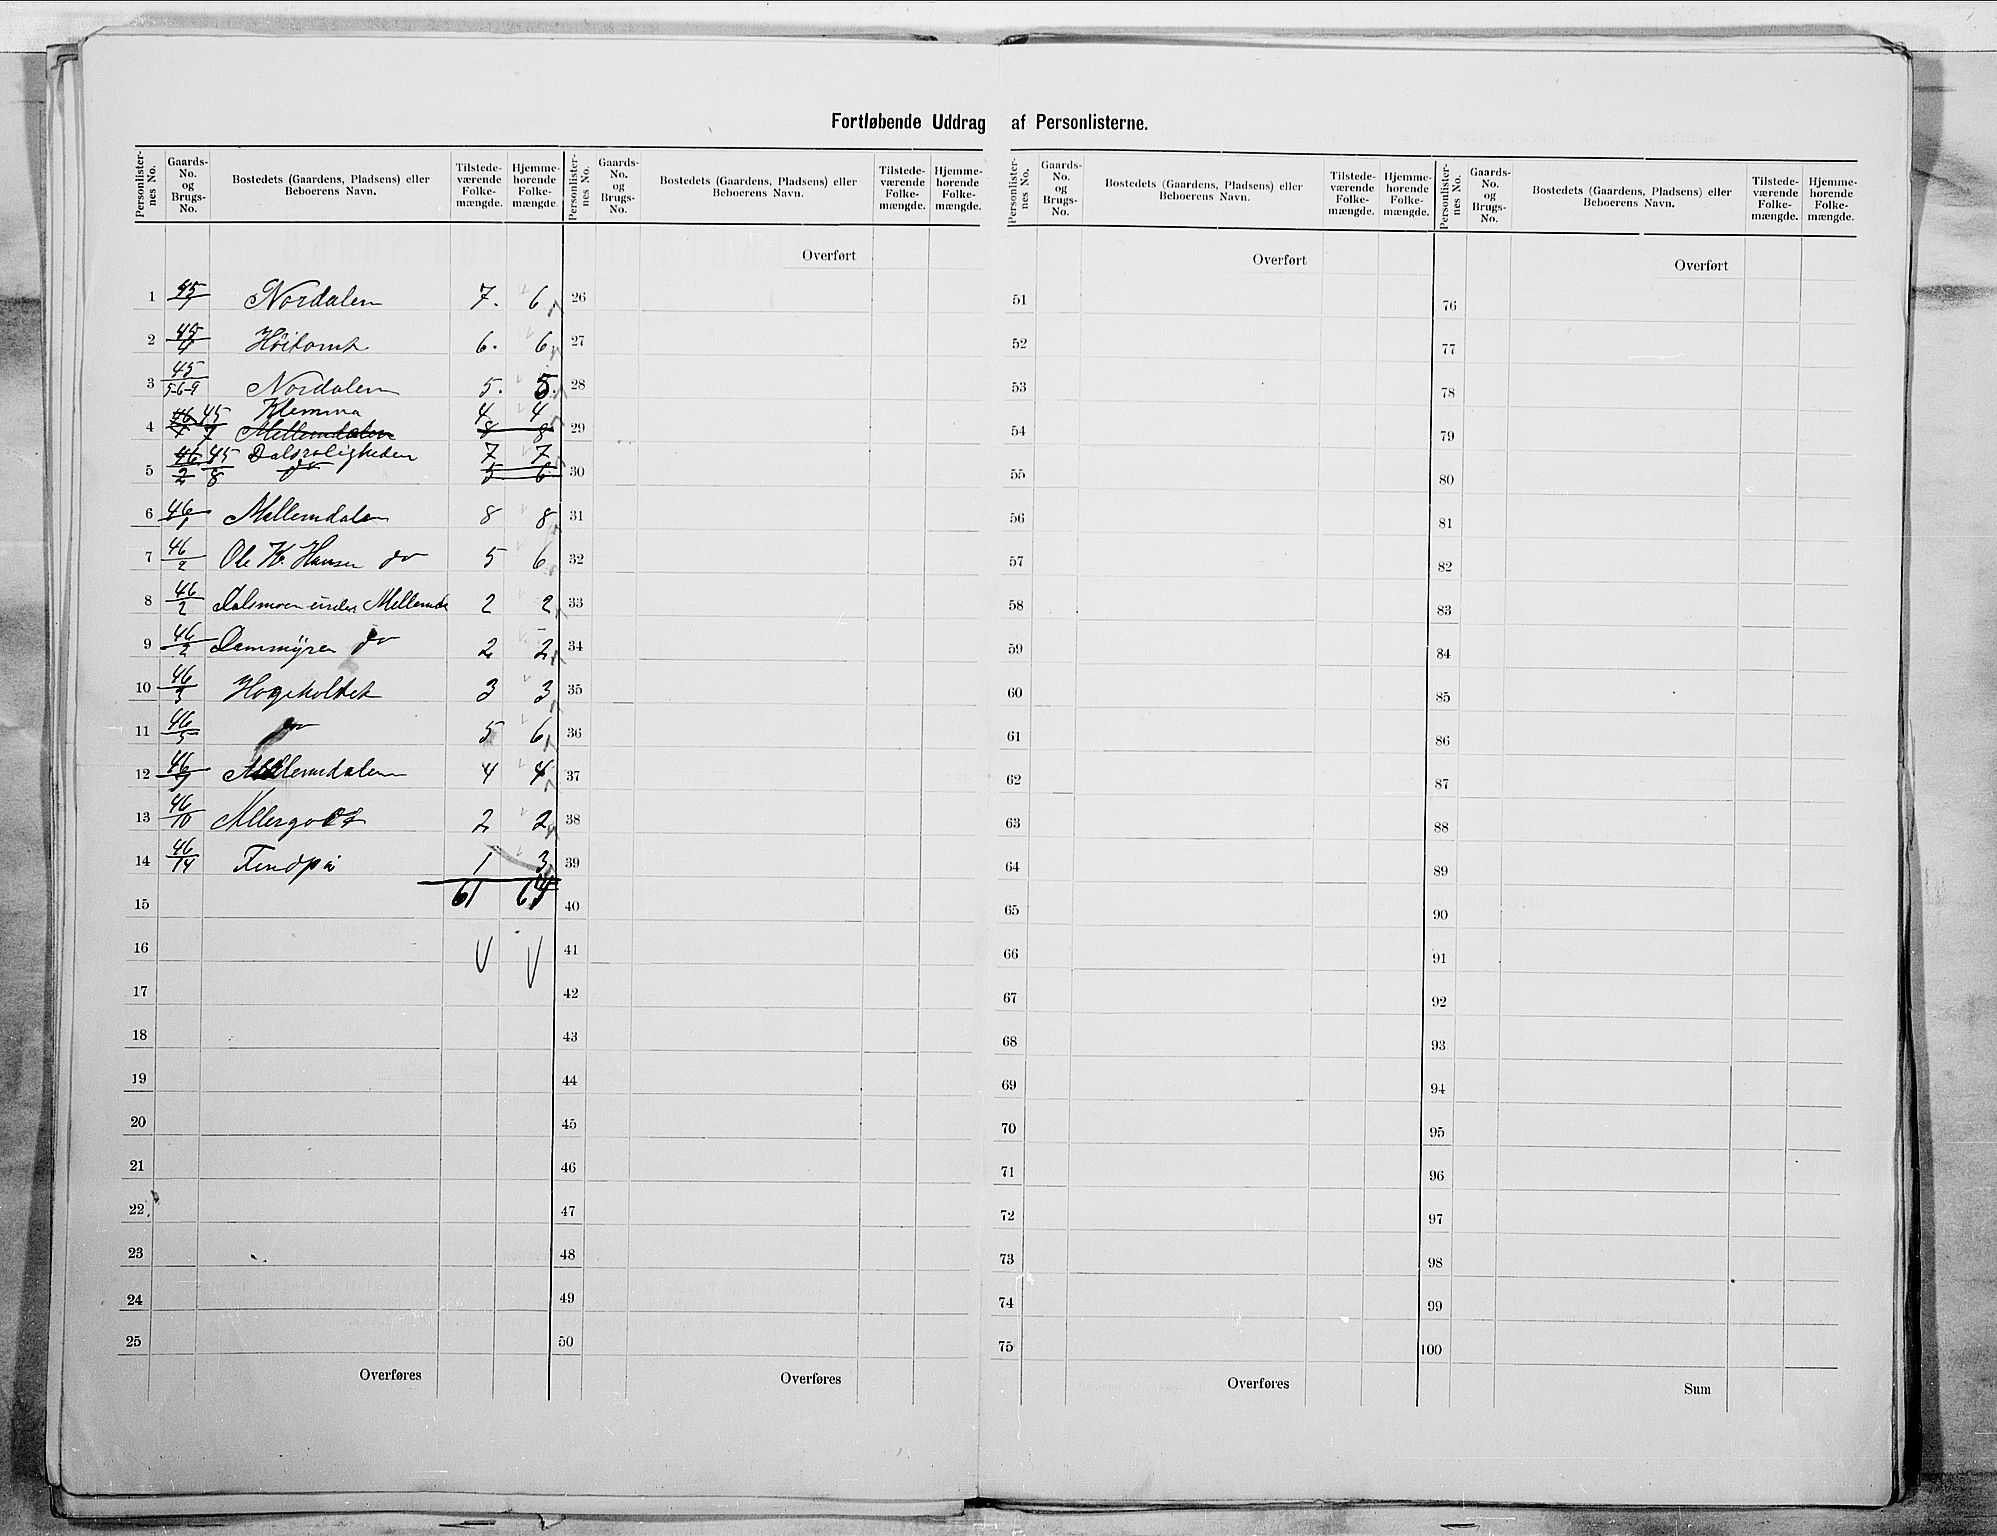 Fortløbende Uddrag af Personlisterne.
Personlister-nes No. Gaards-No. og Brugs-No. Bostedets (Gaardens, Pladsens) eller Beboerens Navn. Tilstede-værende Folke-mængde. Hjemme-hørende Folke-mængde.
Personlister-nes No. Gaards-No. og Brugs-No. Bostedets (Gaardens, Pladsens) eller Beboerens Navn. Tilstede-værende Folke-mængde. Hjemme-hørende Folke-mængde.
Personlister-nes No. Gaards-No. og Brugs-No. Bostedets (Gaardens, Pladsens) eller Beboerens Navn. Tilstede-værende Folke-mængde. Hjemme-hørende Folke-mængde.
Personlister-nes No. Gaards-No. og Brugs-No. Bostedets (Gaardens, Pladsens) eller Beboerens Navn. Tilstede-værende Folke-mængde. Hjemme-hørende Folke-mængde.
1 45/1 Nordalen 7. 6
2 45/4 Höitomt 6. 6
3 45/5-6-9 Nordalen 5. 5
4 46/1 45/7 Klemma 4 4
Mellemdalen 8 8
5 46/2 45/8 Dalsroligheden 7 7
do 5 6
6 46/1 Mellemdalen 8 8
7 46/2 Ole K. Hansen do 5 6
8 46/2 Dalsmoen under Mellemda 2 2
9 46/2 Dammÿren do 2 2
10 46/3 3 3
11 46/5 do 5 6
12 46/9 Mellemdalen 4 4
13 46/10 2 2
14 46/14 Findpå 1 3
15 61 64
16
17
18
19
20
21
22
23
24
25
Overføres
Overført
26
27
28
29
30
31
32
33
34
35
36
37
38
39
40
41
42
43
44
45
46
47
48
49
50
Overføres
Overført
51
52
53
54
55
56
57
58
59
60
61
62
63
64
65
66
67
68
69
70
71
72
73
74
75
Overføres
Overført
76
77
78
79
80
81
82
83
84
85
86
87
88
89
90
91
92
93
94
95
96
97
98
99
100
Sum